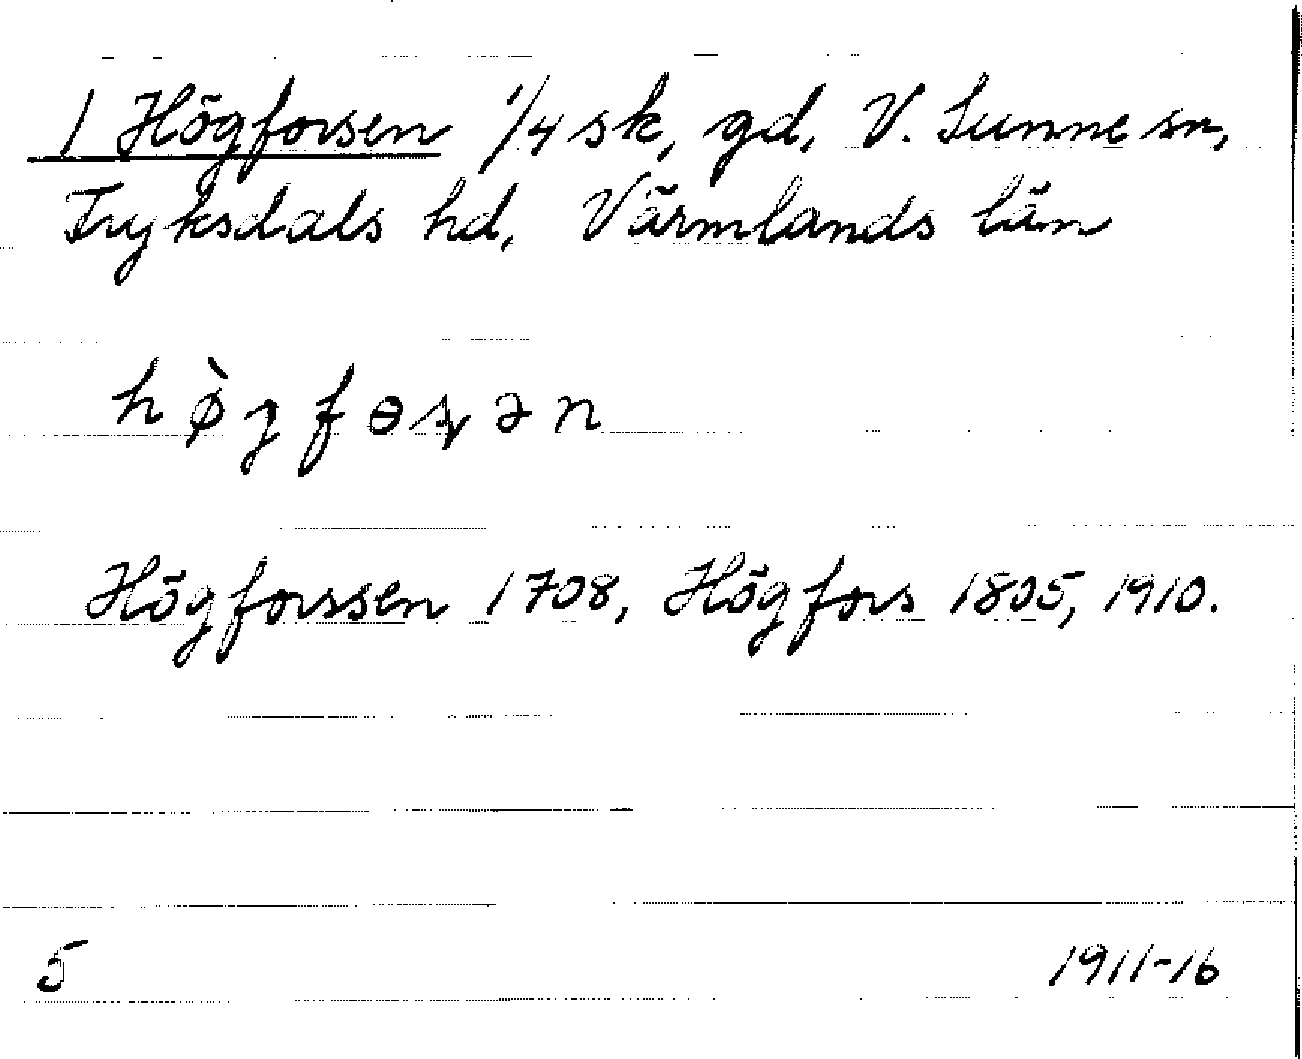 1 Högforsen 1/4 sk, gd, V. Sunne sn,
Fryksdals hd, Värmlands län
hø̀gfɵʂən
Högforssen 1708, Högfors 1805, 1910.
5 1911-16